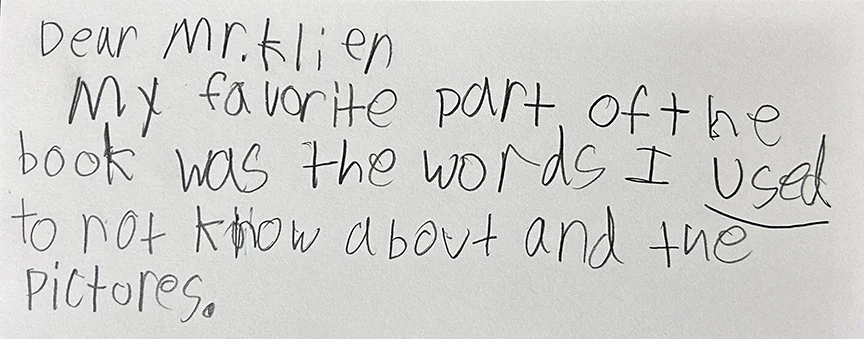 Dear Mr. Klien
My favorite part of the
book was the words I used
to not know about and the
pictores.